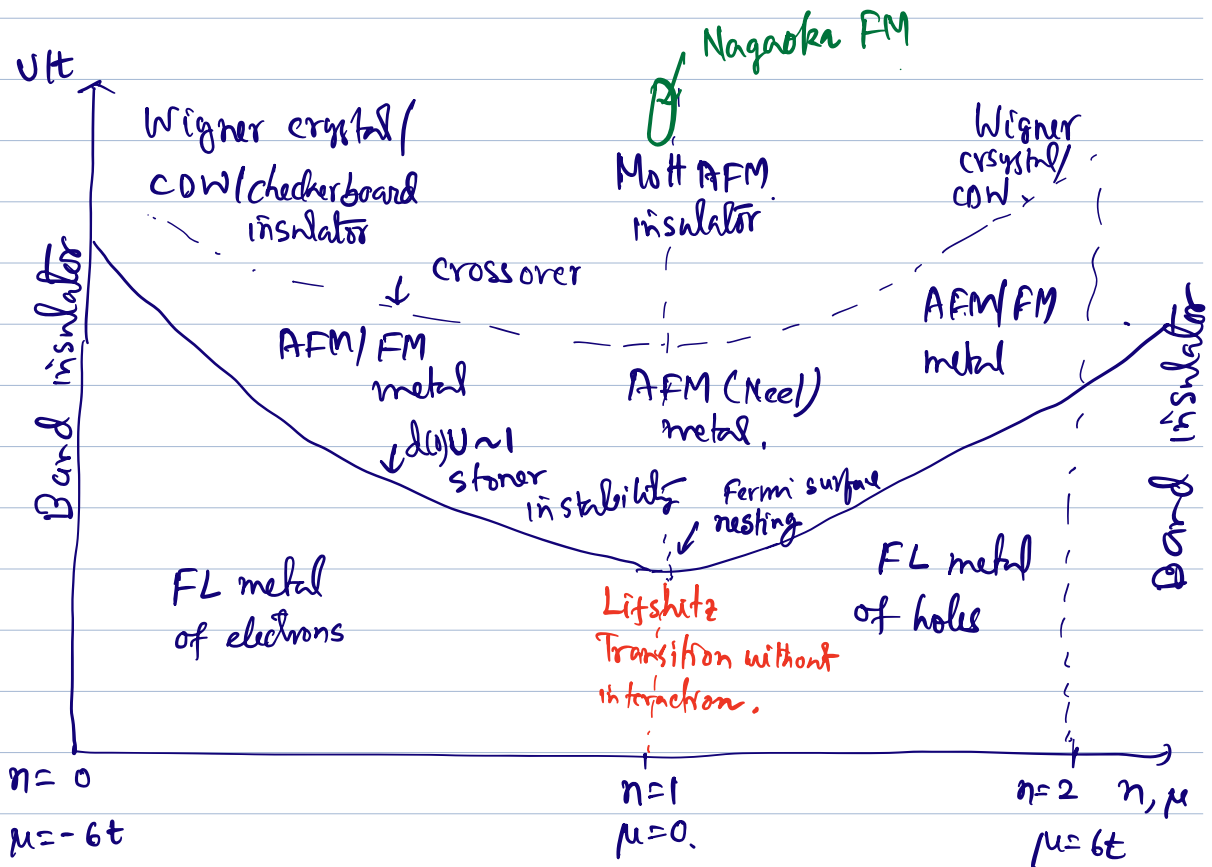 Nagaoka FM
U/t
Wigner crystal/
CDW/checkerboard
insulator
Mott AFM
insulator
Wigner
crsystal/
CDW
crossover
AFM/FM
metal
AFM (Neel)
metal.
AFM/FM
metal
Band insulator
Band insulator
d(0)U~1
stoner
instability
Fermi surface
nesting
FL metal
of electrons
FL metal
of holes
Lifshitz
Transition without
interaction.
n= 0
μ=-6t
n=1
μ=0.
n=2
μ=6t
n, μ